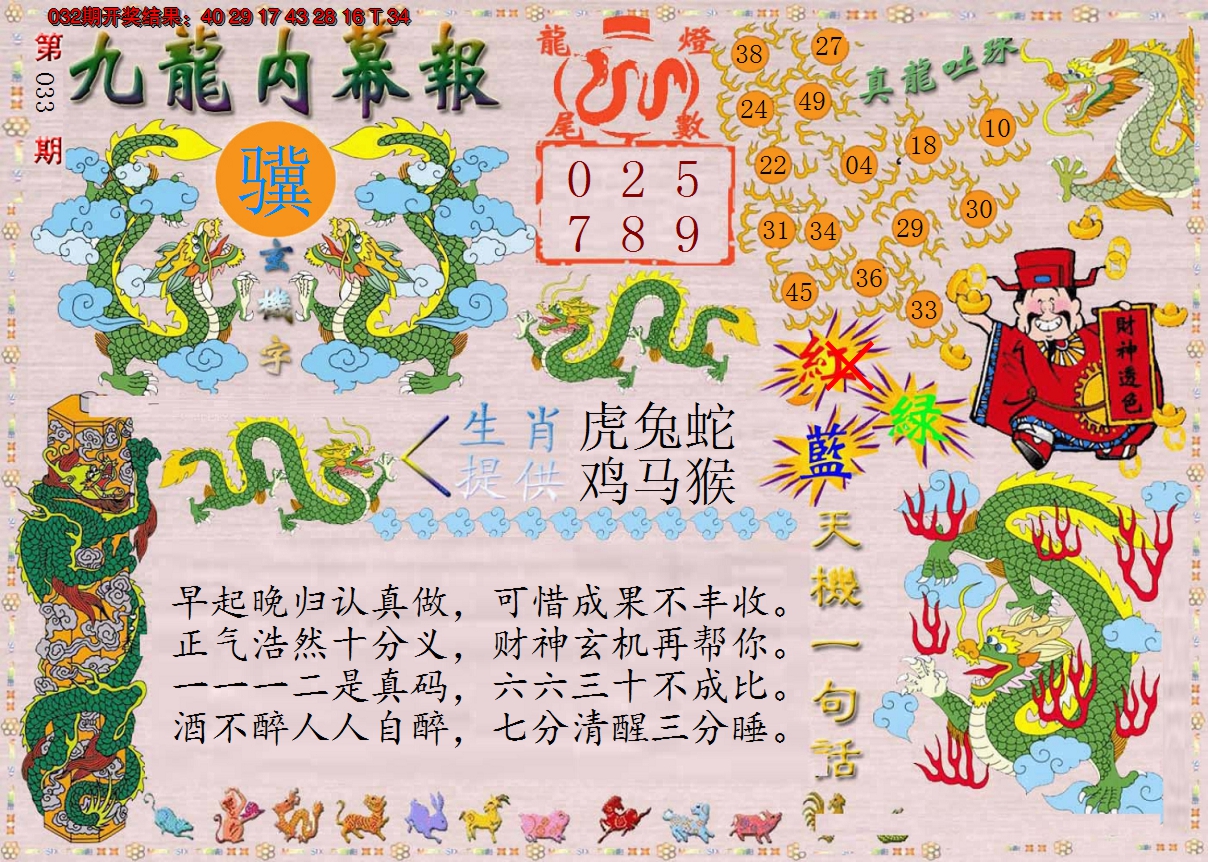 032期开奖结果：40 29 17 43 28 16 T 34
第033期
九龍内幕報
龍燈尾數
0 2 5
7 8 9
真龍吐珠
38 27
24 49
22 04 18 10
31 34 29 30
45 36 33
骥
玄機字
財神透色
紅
緑
藍
生肖提供
虎兔蛇
鸡马猴
早起晚归认真做，可惜成果不丰收。
正气浩然十分义，财神玄机再帮你。
一一一二是真码，六六三十不成比。
酒不醉人人自醉，七分清醒三分睡。
天機一句话